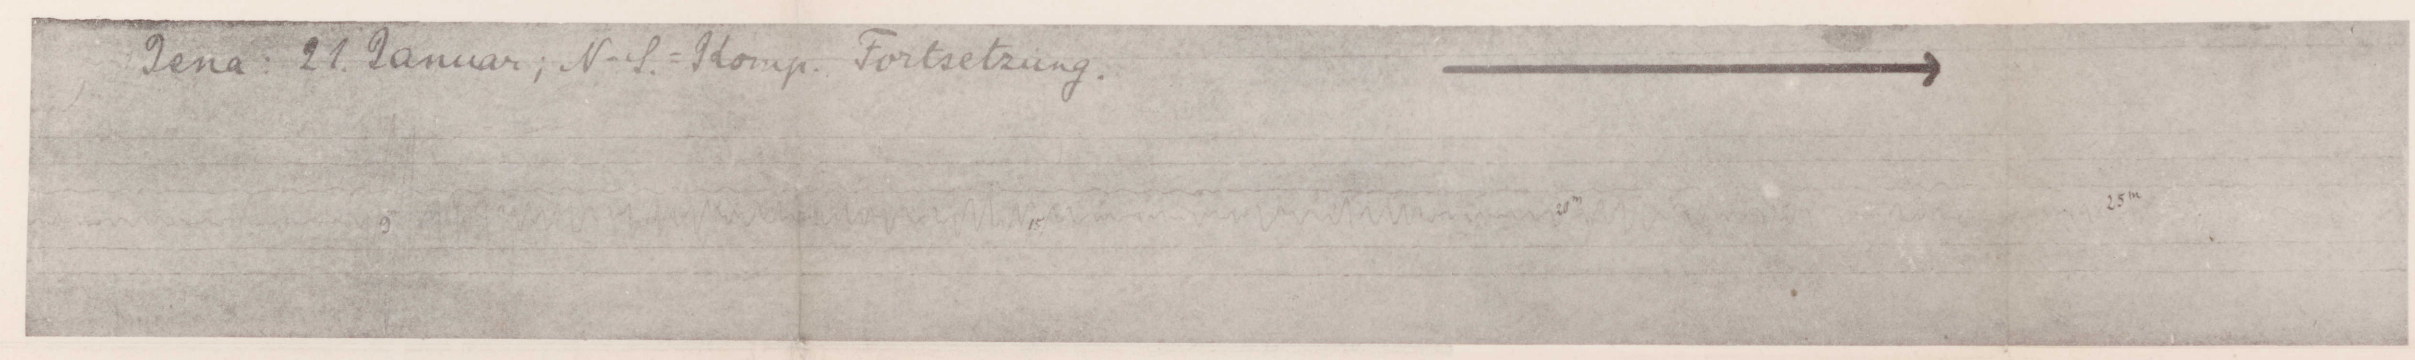 Jena: 21. Januar; N-S.=Komp. Fortsetzung.
9
15
20 m
25 m